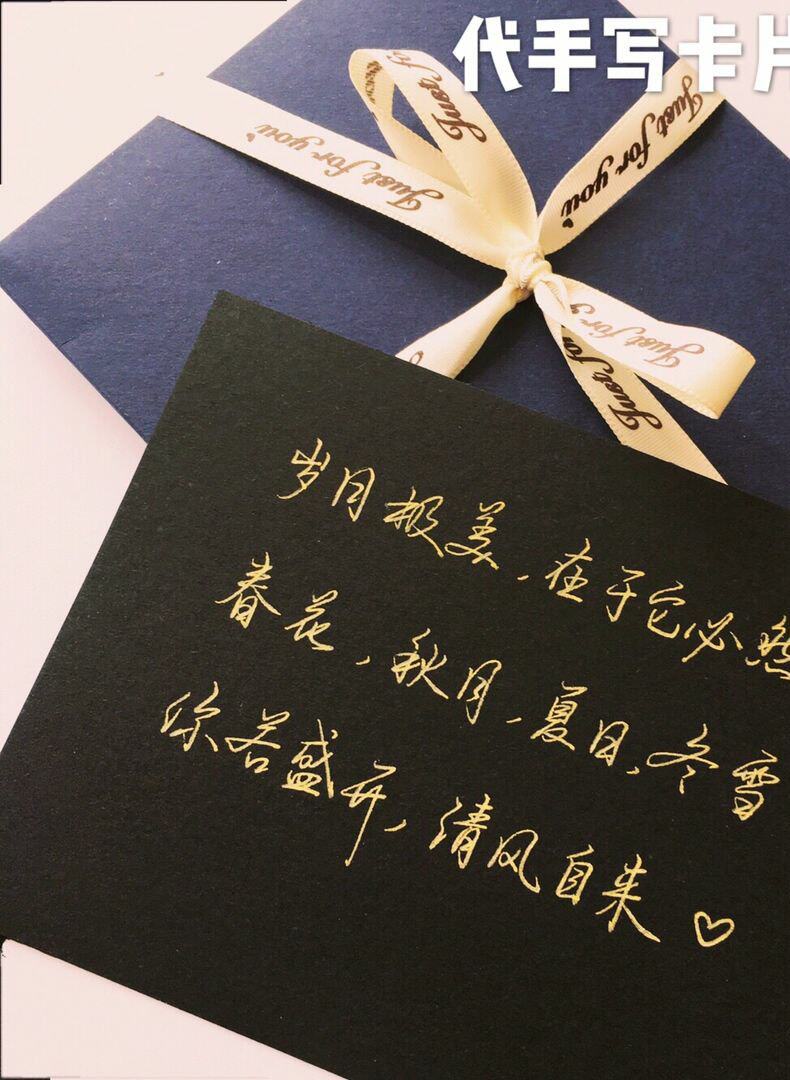 代手写卡片
Just for you
Just for you
Just for you
Just for you
Just for
Just for
岁月极美，在于它必然
春花，秋月，夏日，冬雪
你若盛开，清风自来♡